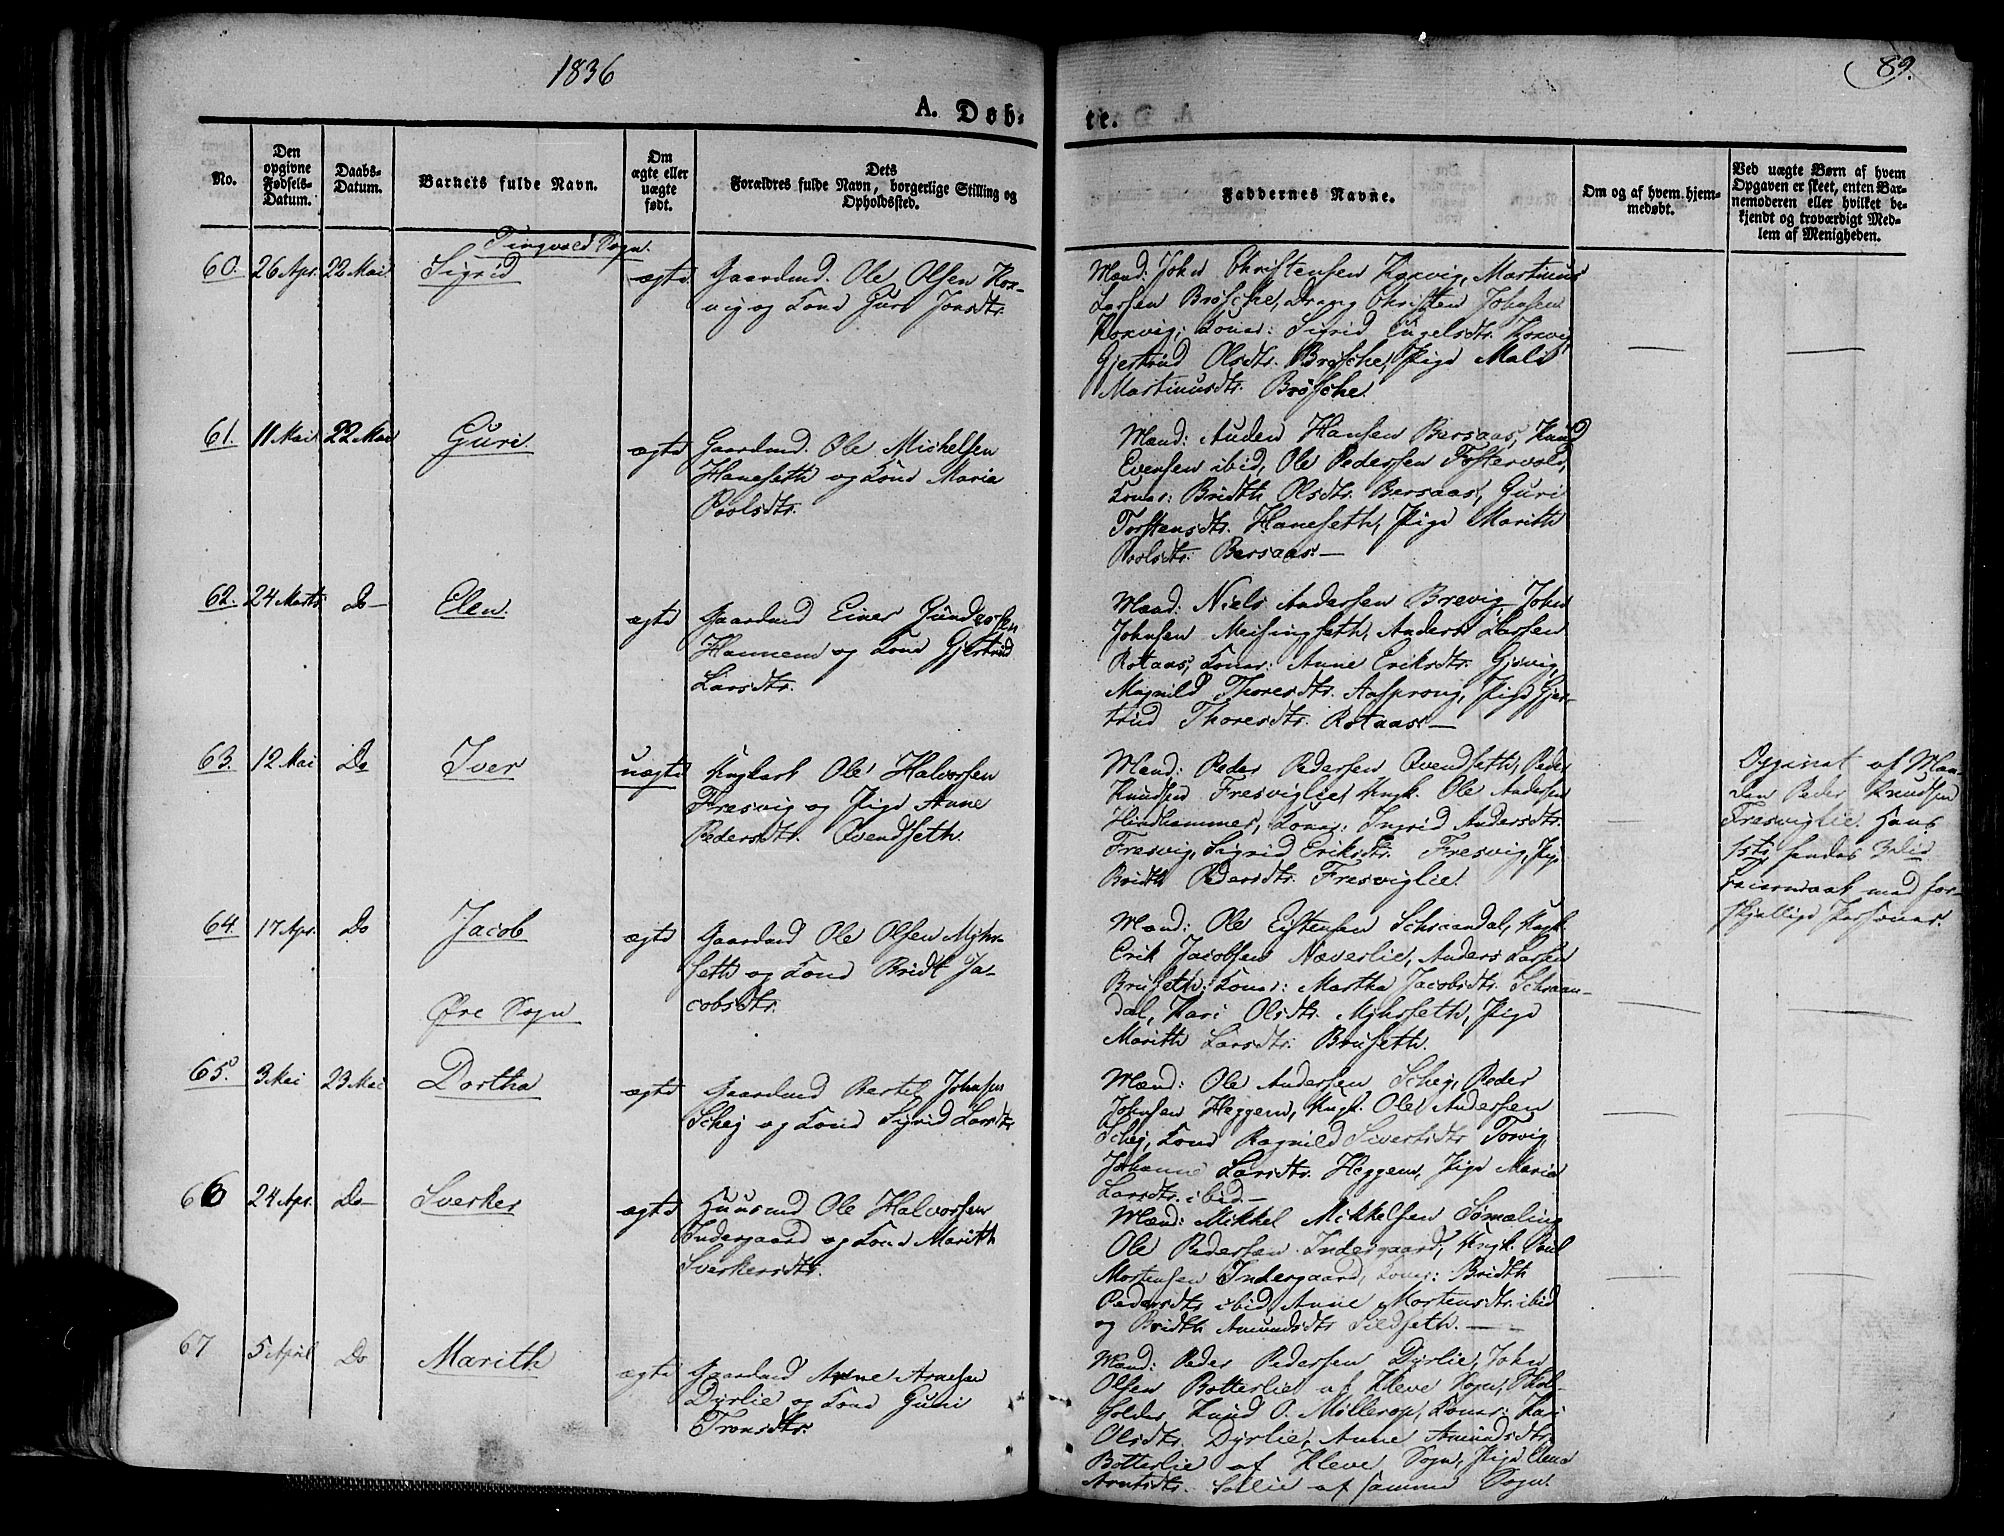 1836
89.
A. Døb-
te.
No.
Den
opgivne
Fødsels-
Datum.
Daabs-
Datum.
Barnets fulde Navn.
Om
ægte eller
uægte
født.
Dets
Forældres fulde Navn, borgerlige Stilling og
Opholdssted.
Faddernes Navne.
Om og af hvem hjem-
medøbt.
Ved uægte Børn af hvem
Opgaven er skeet, enten Bar-
nemoderen eller hvilket be-
kjendt og troværdigt Med-
lem af Menigheden.
Tingvold Sogn.
60. 26 Apr. 22 Mai Sigrid ægte Gaardmd. Ole Olsen Kor-
vig og Kone Guri Jonsdtr.
Mænd: John Christensen Korvig, Martinus
Larsen Brøsche, Dreng Christen Johnsen
Korvig; Koner: Sigrid Engelsdtr. Korvig,
Gjertrud Olsdtr. Brøsche, Pige Mali
Martinusdtr. Brøsche.
61. 11 Mai 22 Mai Guri. ægte Gaardmd. Ole Michelsen
Haneseth og Kone Maria
Poolsdtr.
Mænd: Auden Hansen Bersaas, Knud
Evensen ibid, Ole Pedersen Fostervold,
Koner: Bridth Olsdtr. Bersaas, Guri
Torstensdtr. Haneseth, Pige Marith
Poolsdtr. Bersaas.—
62. 24 Marts Do— Elen. ægte Gaardmd Einer Gundersen
Hannem og Kone Gjertrud
Larsdtr.
Mænd: Niels Andersen Brevig, John
Johnsen Meisingseth, Anders Larsen
Rotaas, Koner: Anne Eriksdtr. Gjsvig,
Magnild Thoresdtr. Aasprong, Pige Gjer-
trud Thoresdtr. Rotaas.—
63. 12 Mai Do Iver uægte Ungkarl Ole Halvorsen
Fresvig og Pige Anne
Pedersdtr. Qvendseth.
Mænd: Peder Pedersen Qvendseth, Peder
Knudsen Fresviglie, Ungk. Ole Andersen
Hindhammer, Koner: Ingrid Andersdtr.
Fresvig, Sigrid Eriksdtr. Fresvig, Pige
Bridth Pedersdtr. Fresviglie.
Opginet af Man-
den Peder Knudsen
Fresviglie. Hans
1ste, hendes
Leiermaal med for-
skjellige Personer.
64. 17 Apr. Do Jacob ægte Gaardmd Ole Olsen Myhr-
seth og Kone Bridt Ja-
cobsdtr.
Mænd: Ole Eistensen Schraandal, Ungk.
Erik Jacobsen Næverlie, Anders Larsen
Bruseth; Koner: Martha Jacobsdtr. Schraan-
dal, Kari Olsdtr. Myhrseth, Pige
Marith Larsdtr. Bruseth.
Øre Sogn
65. 3 Mai 23 Mai Dortha ægte Gaardmd Bertel Johnsen
Schej og Kone Sigrid Larsdtr
Mænd: Ole Andersen Schej, Peder
Johnsen Heggem, Ungk. Ole Andersen
Schej, Kone Ragnild Sivertsdtr Torvig,
Johanne Larsdtr. Heggem, Pige Maria
Larsdtr. ibid.—
66 24 Apr. Do— Sverker ægte Huusmd Ole Halvorsen
Indergaard og Kone Marith
Sverkersdtr.
Mænd: Mikkel Mikkelsen Sømæling
Ole Pedersen Indergaard, Ungk. Poul
Mortensen Indergaard, Koner: Bridth
Pedersdtr ibid, Anne Mortensdtr. ibid
og Bridth Amundsdtr Sildseth.—
67 5 April Do Marith ægte Gaardmd Arne Arnesen
Dyrlie og Kone Guri
Tronsdtr.
Mænd: Peder Pedersen Dyrlie, John
Olsen Botterlie af Kleve Sogn, Skol-
holder Knud O. Møllerop, Koner: Kari
Olsdtr. Dyrlie, Anne Amundsdtr.
Botterlie af Kleve Sogn, Pige Elena
Arntsdtr. Sollie af samme Sogn.